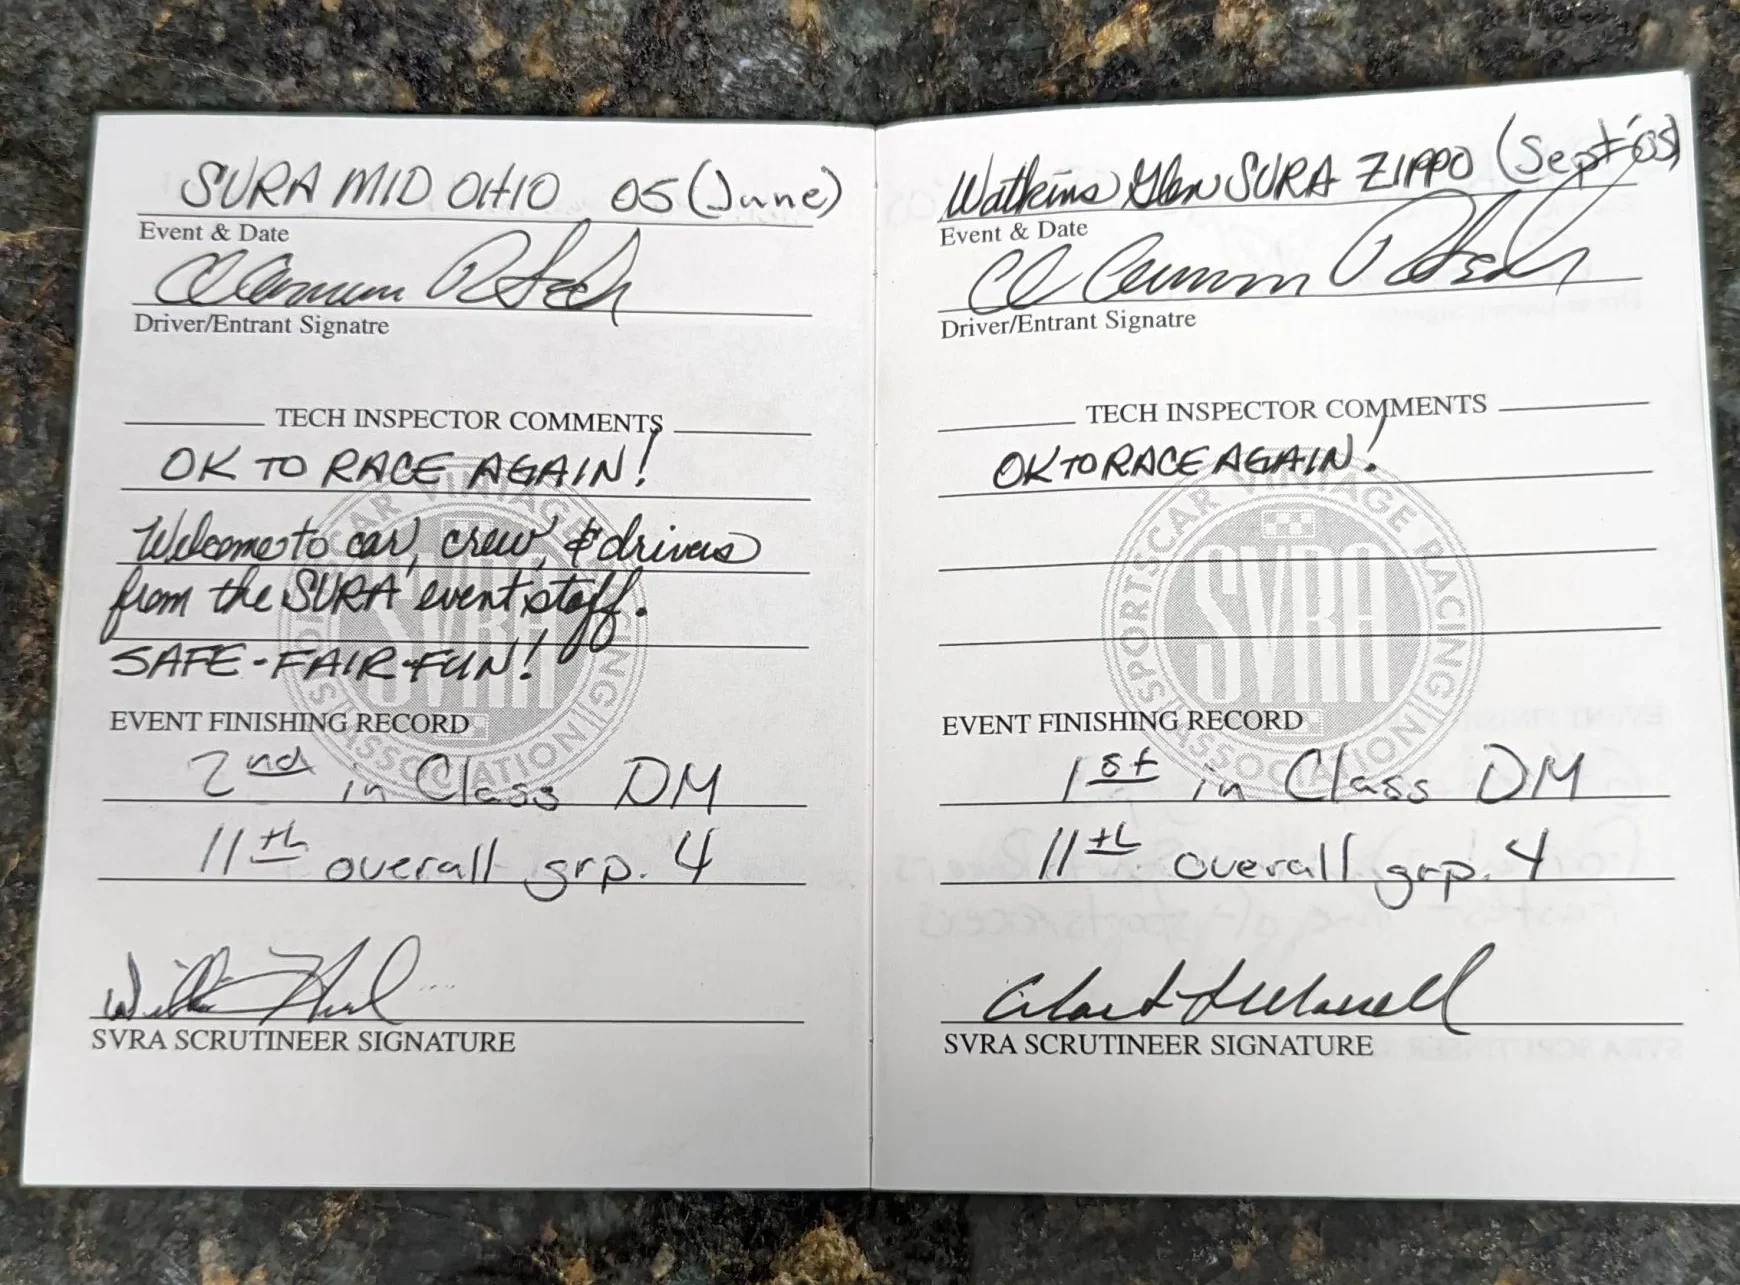 SVRA MID OHIO 05 (June)
Event & Date
Driver/Entrant Signatre
TECH INSPECTOR COMMENTS
OK TO RACE AGAIN!
Welcome to car, crew, & drivers
from the SVRA event staff.
SAFE-FAIR-FUN!
SPORTSCAR VINTAGE RACING ASSOCIATION
SVRA
EVENT FINISHING RECORD
2nd in Class DM
11th overall grp. 4
SVRA SCRUTINEER SIGNATURE
Watkins Glen SVRA ZIPPO (Sept '05)
Event & Date
Driver/Entrant Signatre
TECH INSPECTOR COMMENTS
OK TO RACE AGAIN!
SPORTSCAR VINTAGE RACING ASSOCIATION
SVRA
EVENT FINISHING RECORD
1st in Class DM
11th overall grp. 4
SVRA SCRUTINEER SIGNATURE